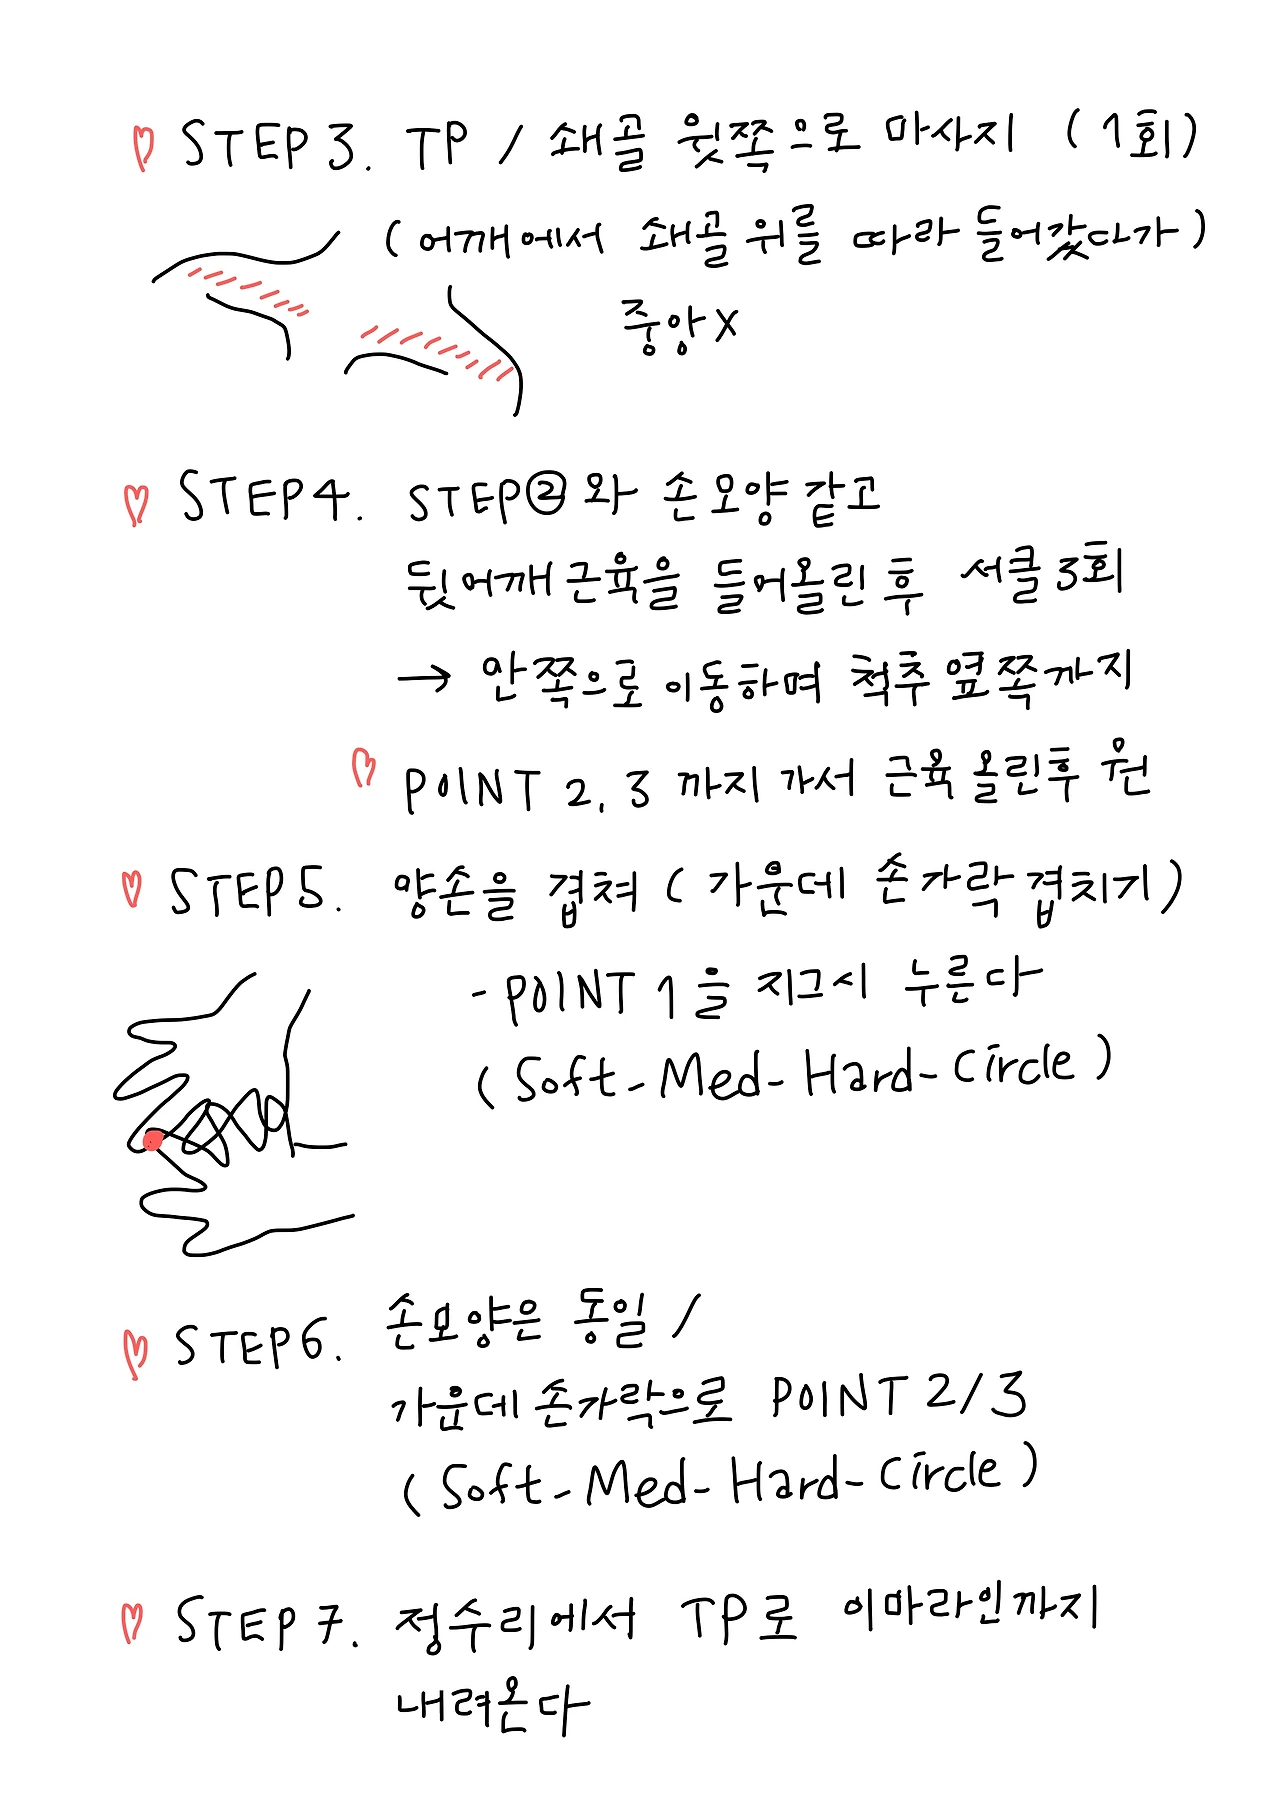 ♡ STEP 3. TP / 쇄골 윗쪽으로 마사지 (1회)
(어깨에서 쇄골 위를 따라 들어갔다가)
중앙X
♡ STEP 4. STEP②와 손모양 같고
뒷어깨 근육을 들어올린 후 서클 3회
→ 안쪽으로 이동하며 척추 옆쪽까지
♡ POINT 2, 3 까지 가서 근육 올린후 원
♡ STEP 5. 양손을 겹쳐 (가운데 손가락 겹치기)
- POINT 1을 지그시 누른다
(Soft-Med-Hard-Circle)
♡ STEP 6. 손모양은 동일 /
가운데 손가락으로 POINT 2/3
(Soft-Med-Hard-Circle)
♡ STEP 7. 정수리에서 TP로 이마라인까지
내려온다